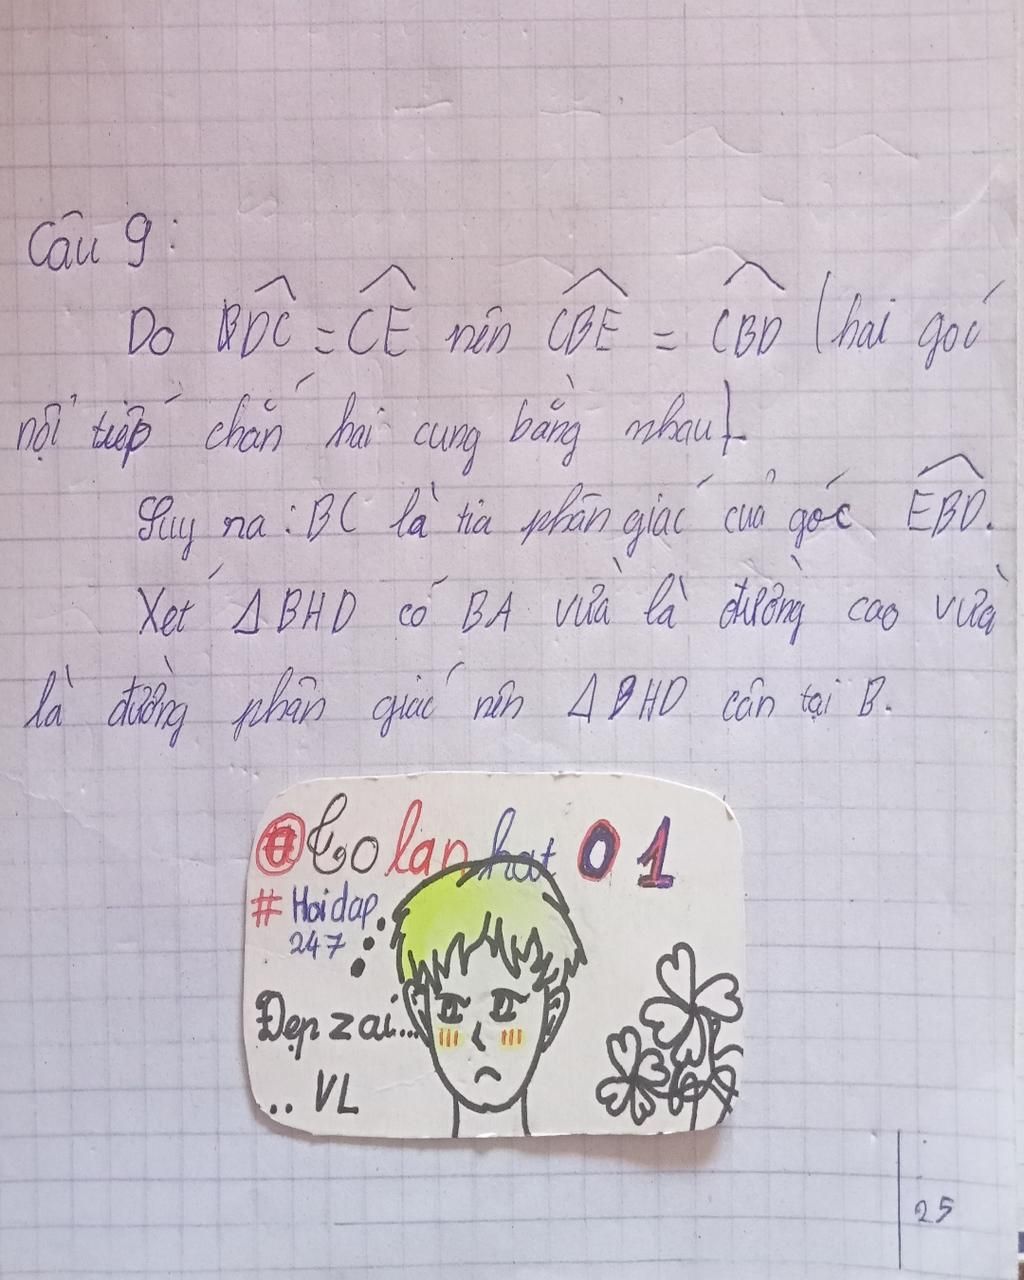 Câu 9:
Do BDC = CE nên CBE = CBD (hai góc
nội tiếp chắn hai cung bằng nhau).
Suy ra: BC là tia phân giác của góc EBD.
Xét ΔBHD có BA vừa là đường cao vừa
là đường phân giác nên ΔBHD cân tại B.
@tolanhat01
# Hoidap
247
Đẹp zai...
.. VL
25